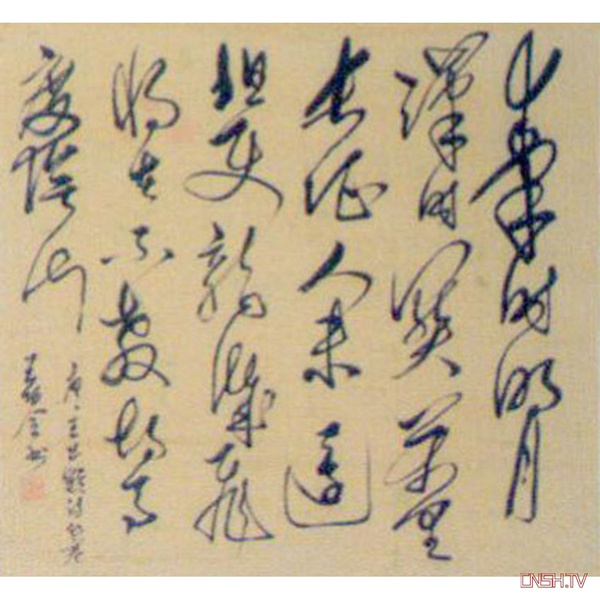 秦时明月
漢时関万里
长征人未還
但使龍城飛
将在不教胡马
度陰山
CNSH.TV